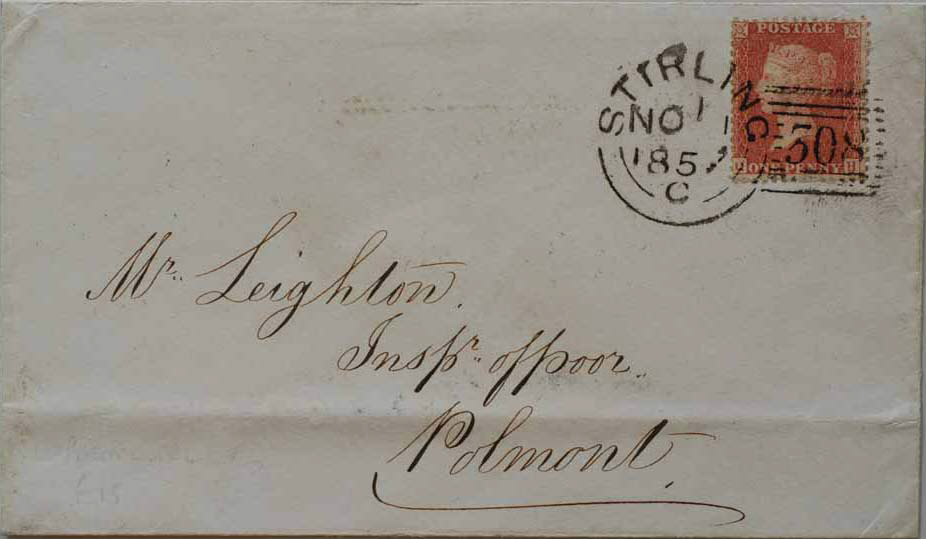 POSTAGE
ONE PENNY
H
STIRLING
NO 1
1857
C
308
Mr. Leighton.
Inspr. of poor.
Polmont
£15